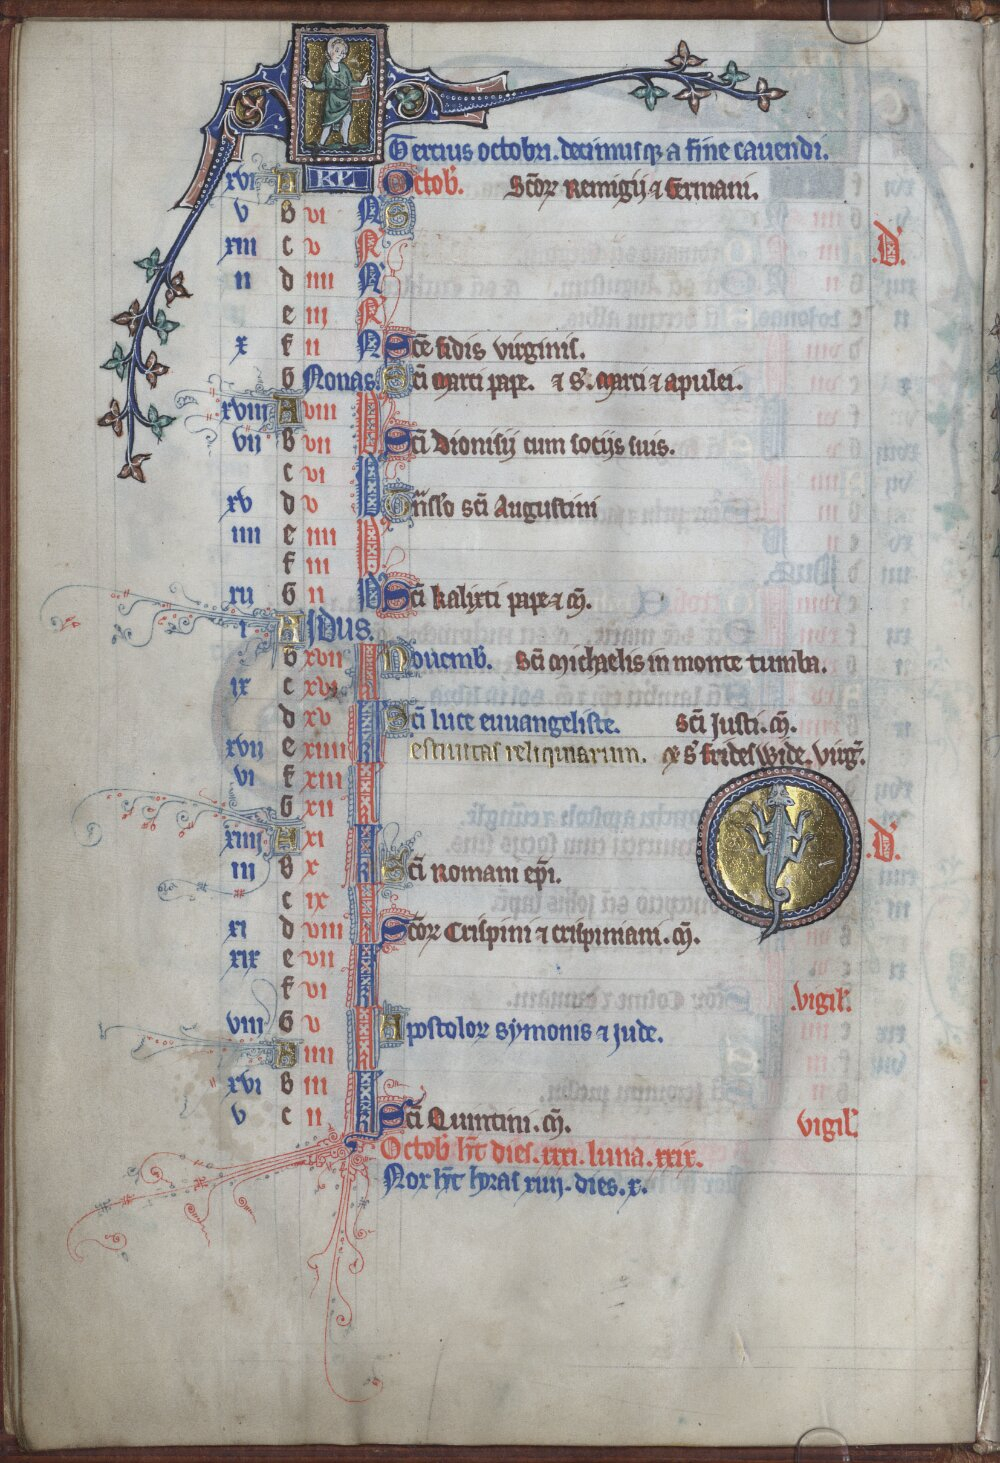 Tercius octobri. decimusq; a fine cauendi.
xvi A KL Octob'. Scõꝝ Remigij ⁊ Germani.
v b vi N
xiii c v N D.
ii d iiii N
e iii N
x f ii N Sc̃e fidis virginis.
G Nonas. Sc̃i marci pape. ⁊ s'. marci ⁊ apulei.
xviii A viii Id
vii b vii Sc̃i Dionisij cum socijs suis.
c vi Id
xv d v Trñslo sc̃i Augustini
iiii e iiii
f iii
xii G ii Id Sc̃i kalixti pape ⁊ m̃.
i A Idus.
b xvii Nouemb'. Sc̃i michaelis in monte tumba.
ix c xvi
d xv kl Sc̃i luce euuangeliste. sc̃i Justi. m̃.
xvii e xiiii kl Festiuitas reliquiarum. et s' frideswide. virg̃.
vi f xiii
G xii kl
xiiii A xi D.
iii b x kl Sc̃i Romani ep̃i.
c ix
xi d viii kl Scõꝝ Crispini ⁊ crispiniani. m̃.
xix e vii
f vi kl vigil'.
viii G v Apostoloꝝ symonis ⁊ Jude.
A iiii kl
xvi b iii
v c ii kl Sc̃i Quintini. m̃. vigil'.
Octob' ht̃ dies. xxxi. luna. xxix.
Nox ht̃ horas xiiii. dies. x.